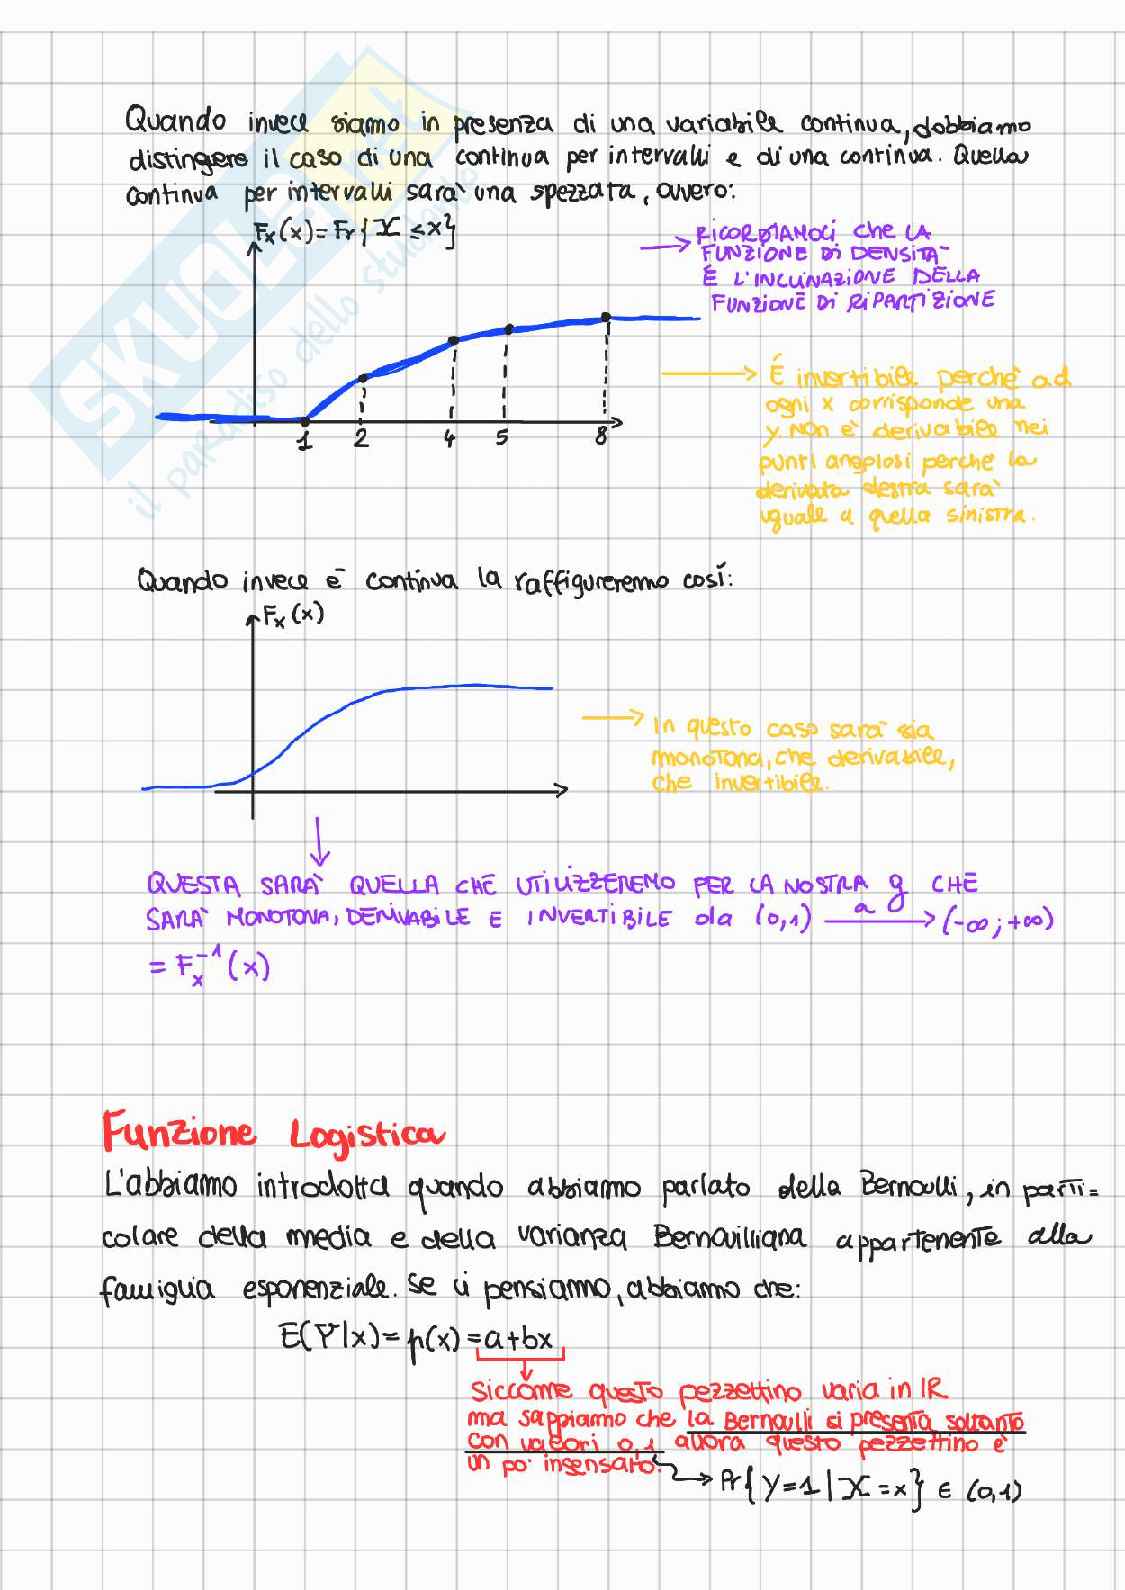 Quando invece siamo in presenza di una variabile continua, dobbiamo
distingere il caso di una continua per intervalli e di una continua. Quella
continua per intervalli sarà una spezzata, ovvero:
Fx(x)=Fr{X ≤x}
RICORDIAMOCI CHE LA
FUNZIONE DI DENSITÀ
È L'INCLINAZIONE DELLA
FUNZIONE DI RIPARTIZIONE
È invertibile perchè ad
ogni x corrisponde una
y non è derivabile nei
punti angolosi perchè la
derivata destra sarà
uguale a quella sinistra.
1 2 4 5 8
Quando invece è continua la raffigureremo così:
Fx(x)
In questo caso sarà sia
monotona, che derivabile,
che invertibile.
QUESTA SARÀ QUELLA CHE UTILIZZEREMO PER LA NOSTRA g CHE
SARÀ MONOTONA, DERIVABILE E INVERTIBILE da (0,1) a (-∞;+∞)
= Fx⁻¹(x)
Funzione Logistica
L'abbiamo introdotta quando abbiamo parlato della Bernoulli, in parti=
colare della media e della varianza Bernouilliana appartenente alla
famiglia esponenziale. Se ci pensiamo, abbiamo che:
E(Y|x)= p(x) = a+bx
Siccome questo pezzettino varia in IR
ma sappiamo che la Bernoulli si presenta soltanto
con valori 0,1 allora questo pezzettino è
un po' insensato.
Pr{Y=1|X=x} ∈ (0,1)
SKUOLA.net
il paradiso dello studente